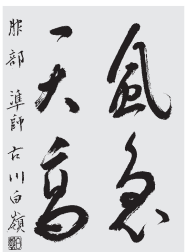 風急
天高
服部 準師 古川白嶺